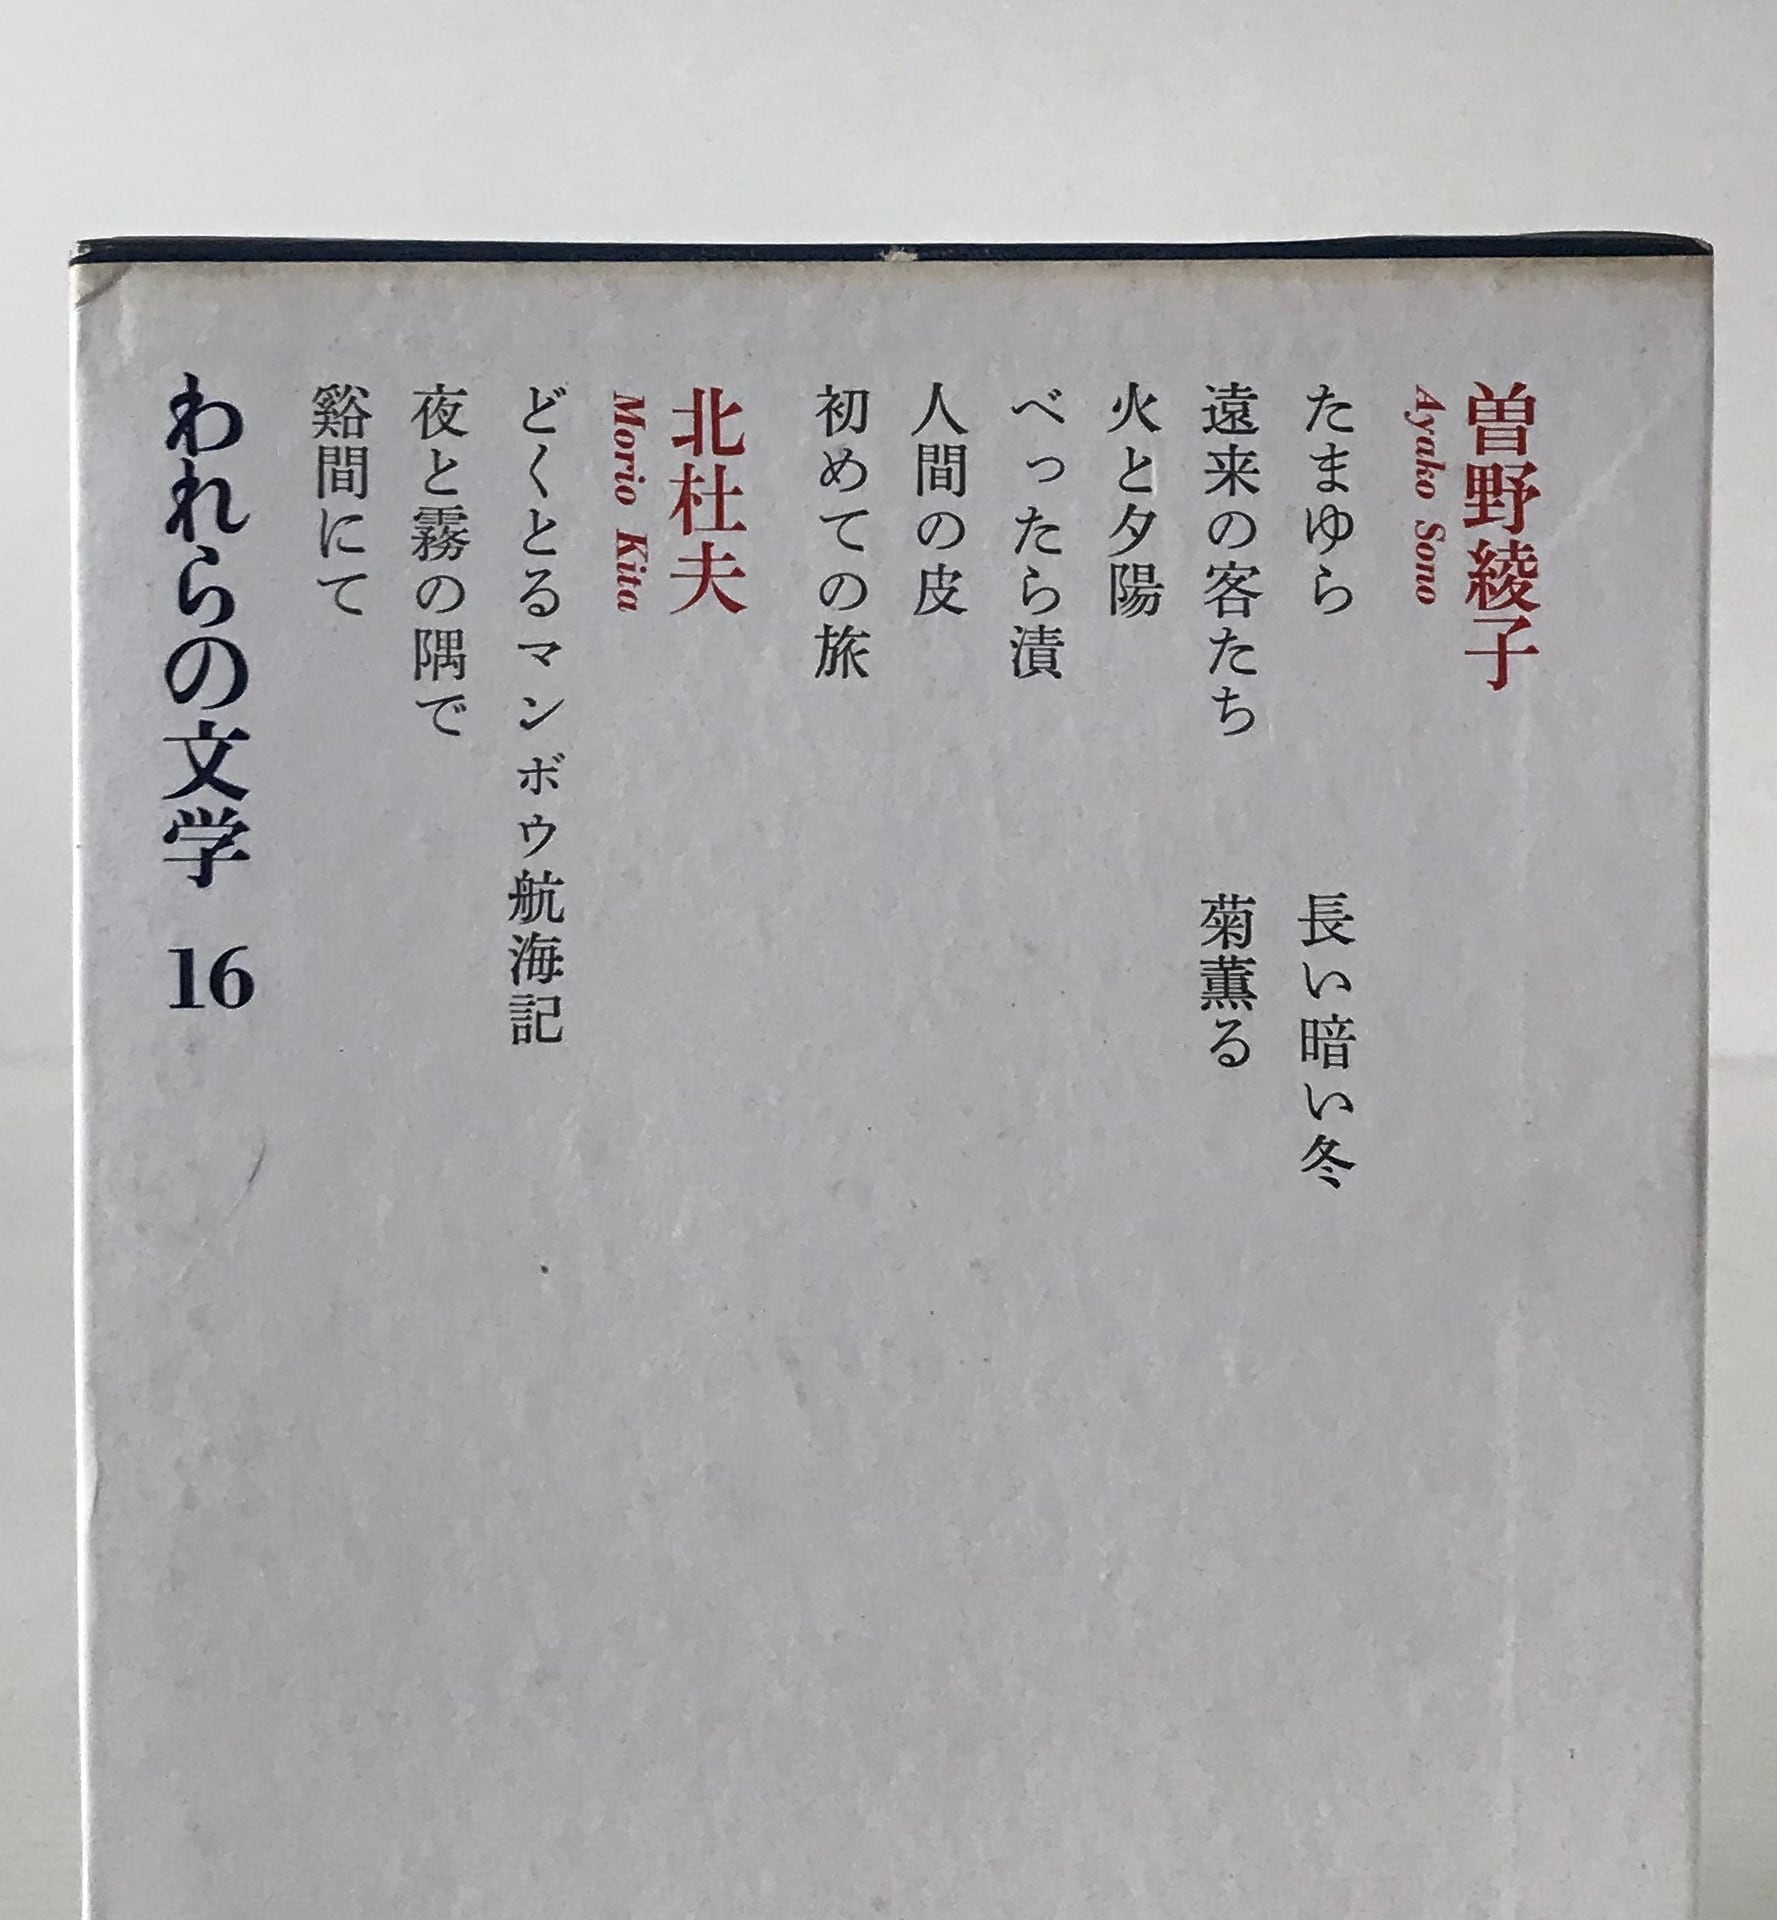 曽野綾子
Ayako Sono
たまゆら
遠来の客たち
火と夕陽
べったら漬
人間の皮
初めての旅
長い暗い冬
菊薫る
北杜夫
Morio Kita
どくとるマンボウ航海記
夜と霧の隅で
谿間にて
われらの文学 16